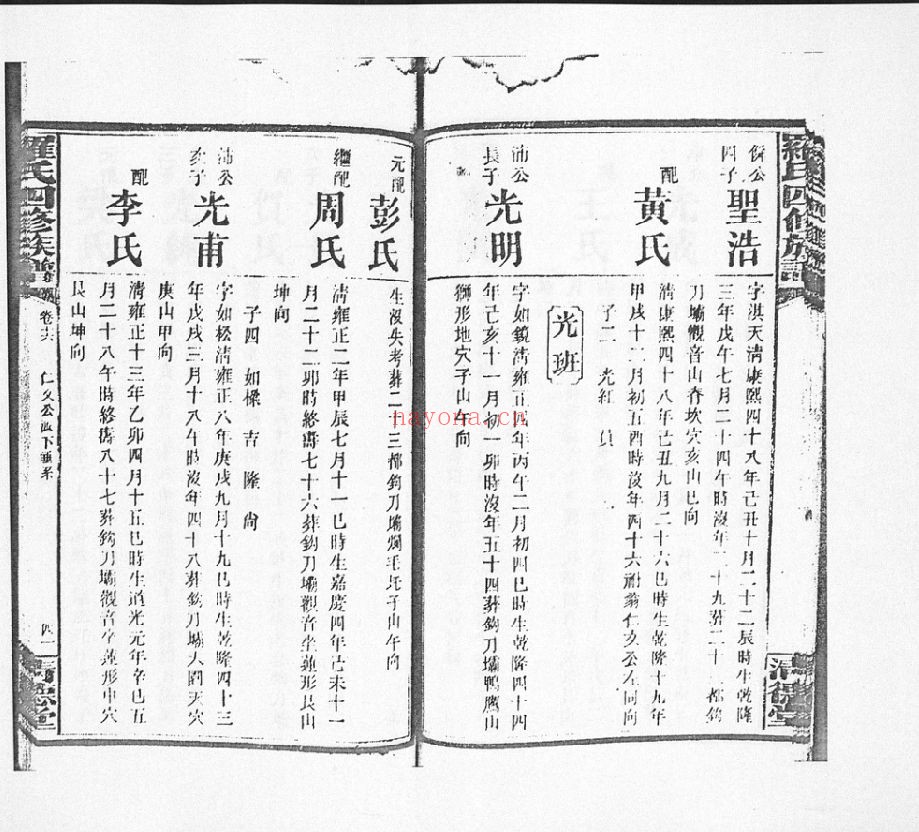 羅氏四修族譜
儉公
四子
聖浩
字淇天清康熙四十八年己丑十月二十二辰時生乾隆
三年戊午七月二十四午時沒年二十九葬二十三都鈎
刀壩觀音山脊坎穴亥山巳向
配
黃氏
清康熙四十八年己丑九月二十六巳時生乾隆十九年
甲戌十二月初五酉時沒年四十六祔翁仁亥公左同向
子二 光紅 貞
光班
沛公
長子
光明
字如鏡清雍正四年丙午二月初四巳時生乾隆四十四
年己亥十一月初一卯時沒年五十四葬鈎刀壩鴨鷹山
獅形地穴子山午向
元配
彭氏
生沒失考葬二十三都鈎刀壩爛毛坵子山午向
繼配
周氏
清雍正二年甲辰七月十一巳時生嘉慶四年己未十一
月二十二卯時終壽七十六葬鈎刀壩觀音坐蓮形艮山
坤向
子四 如樑 吉 隆 尚
沛公
亥子
光甫
字如松清雍正八年庚戌九月十九巳時生乾隆四十三
年戊戌三月十八午時沒年四十八葬鈎刀壩大圳天穴
庚山甲向
配
李氏
清雍正十三年乙卯四月十五巳時生道光元年辛巳五
月二十八午時終壽八十七葬鈎刀壩觀音坐蓮形中穴
艮山坤向
羅氏四修族譜
卷十六
nayona.cn